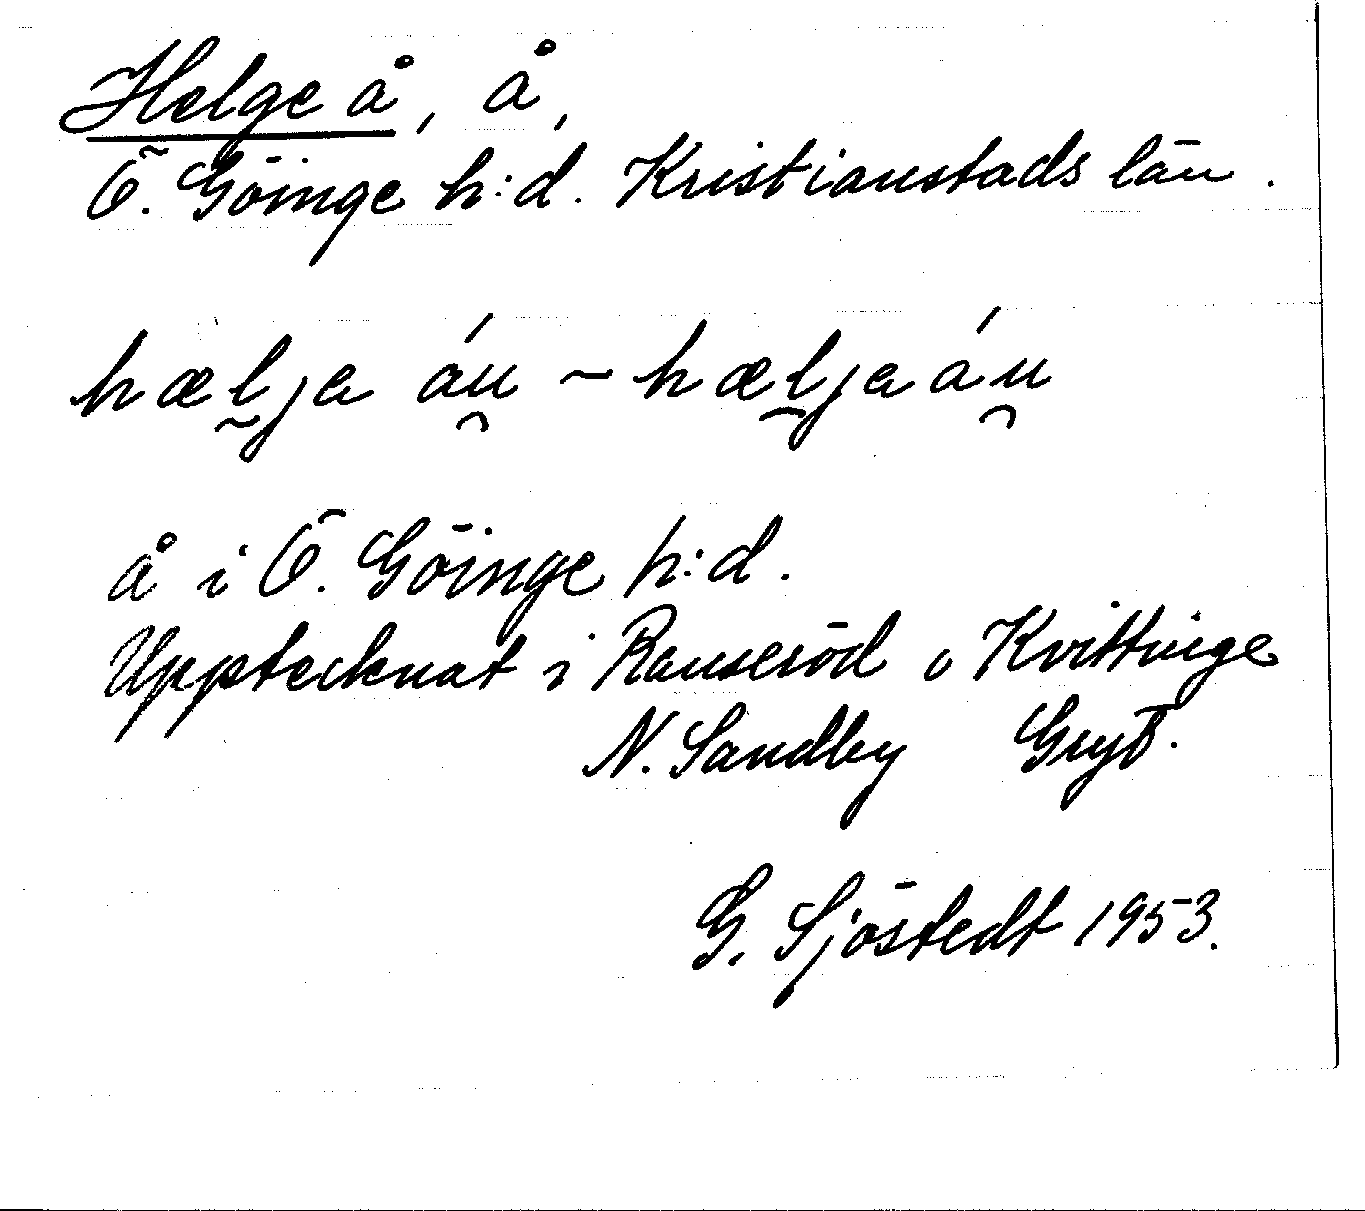 Helge å, å,
Ö. Göinge h:d. Kristianstads län.
hælja áu ~ hæljaáu
å i Ö. Göinge h:d.
Upptecknat i Ranseröd o Kvittinge
N. Sandby Gryt.
G. Sjöstedt 1953.